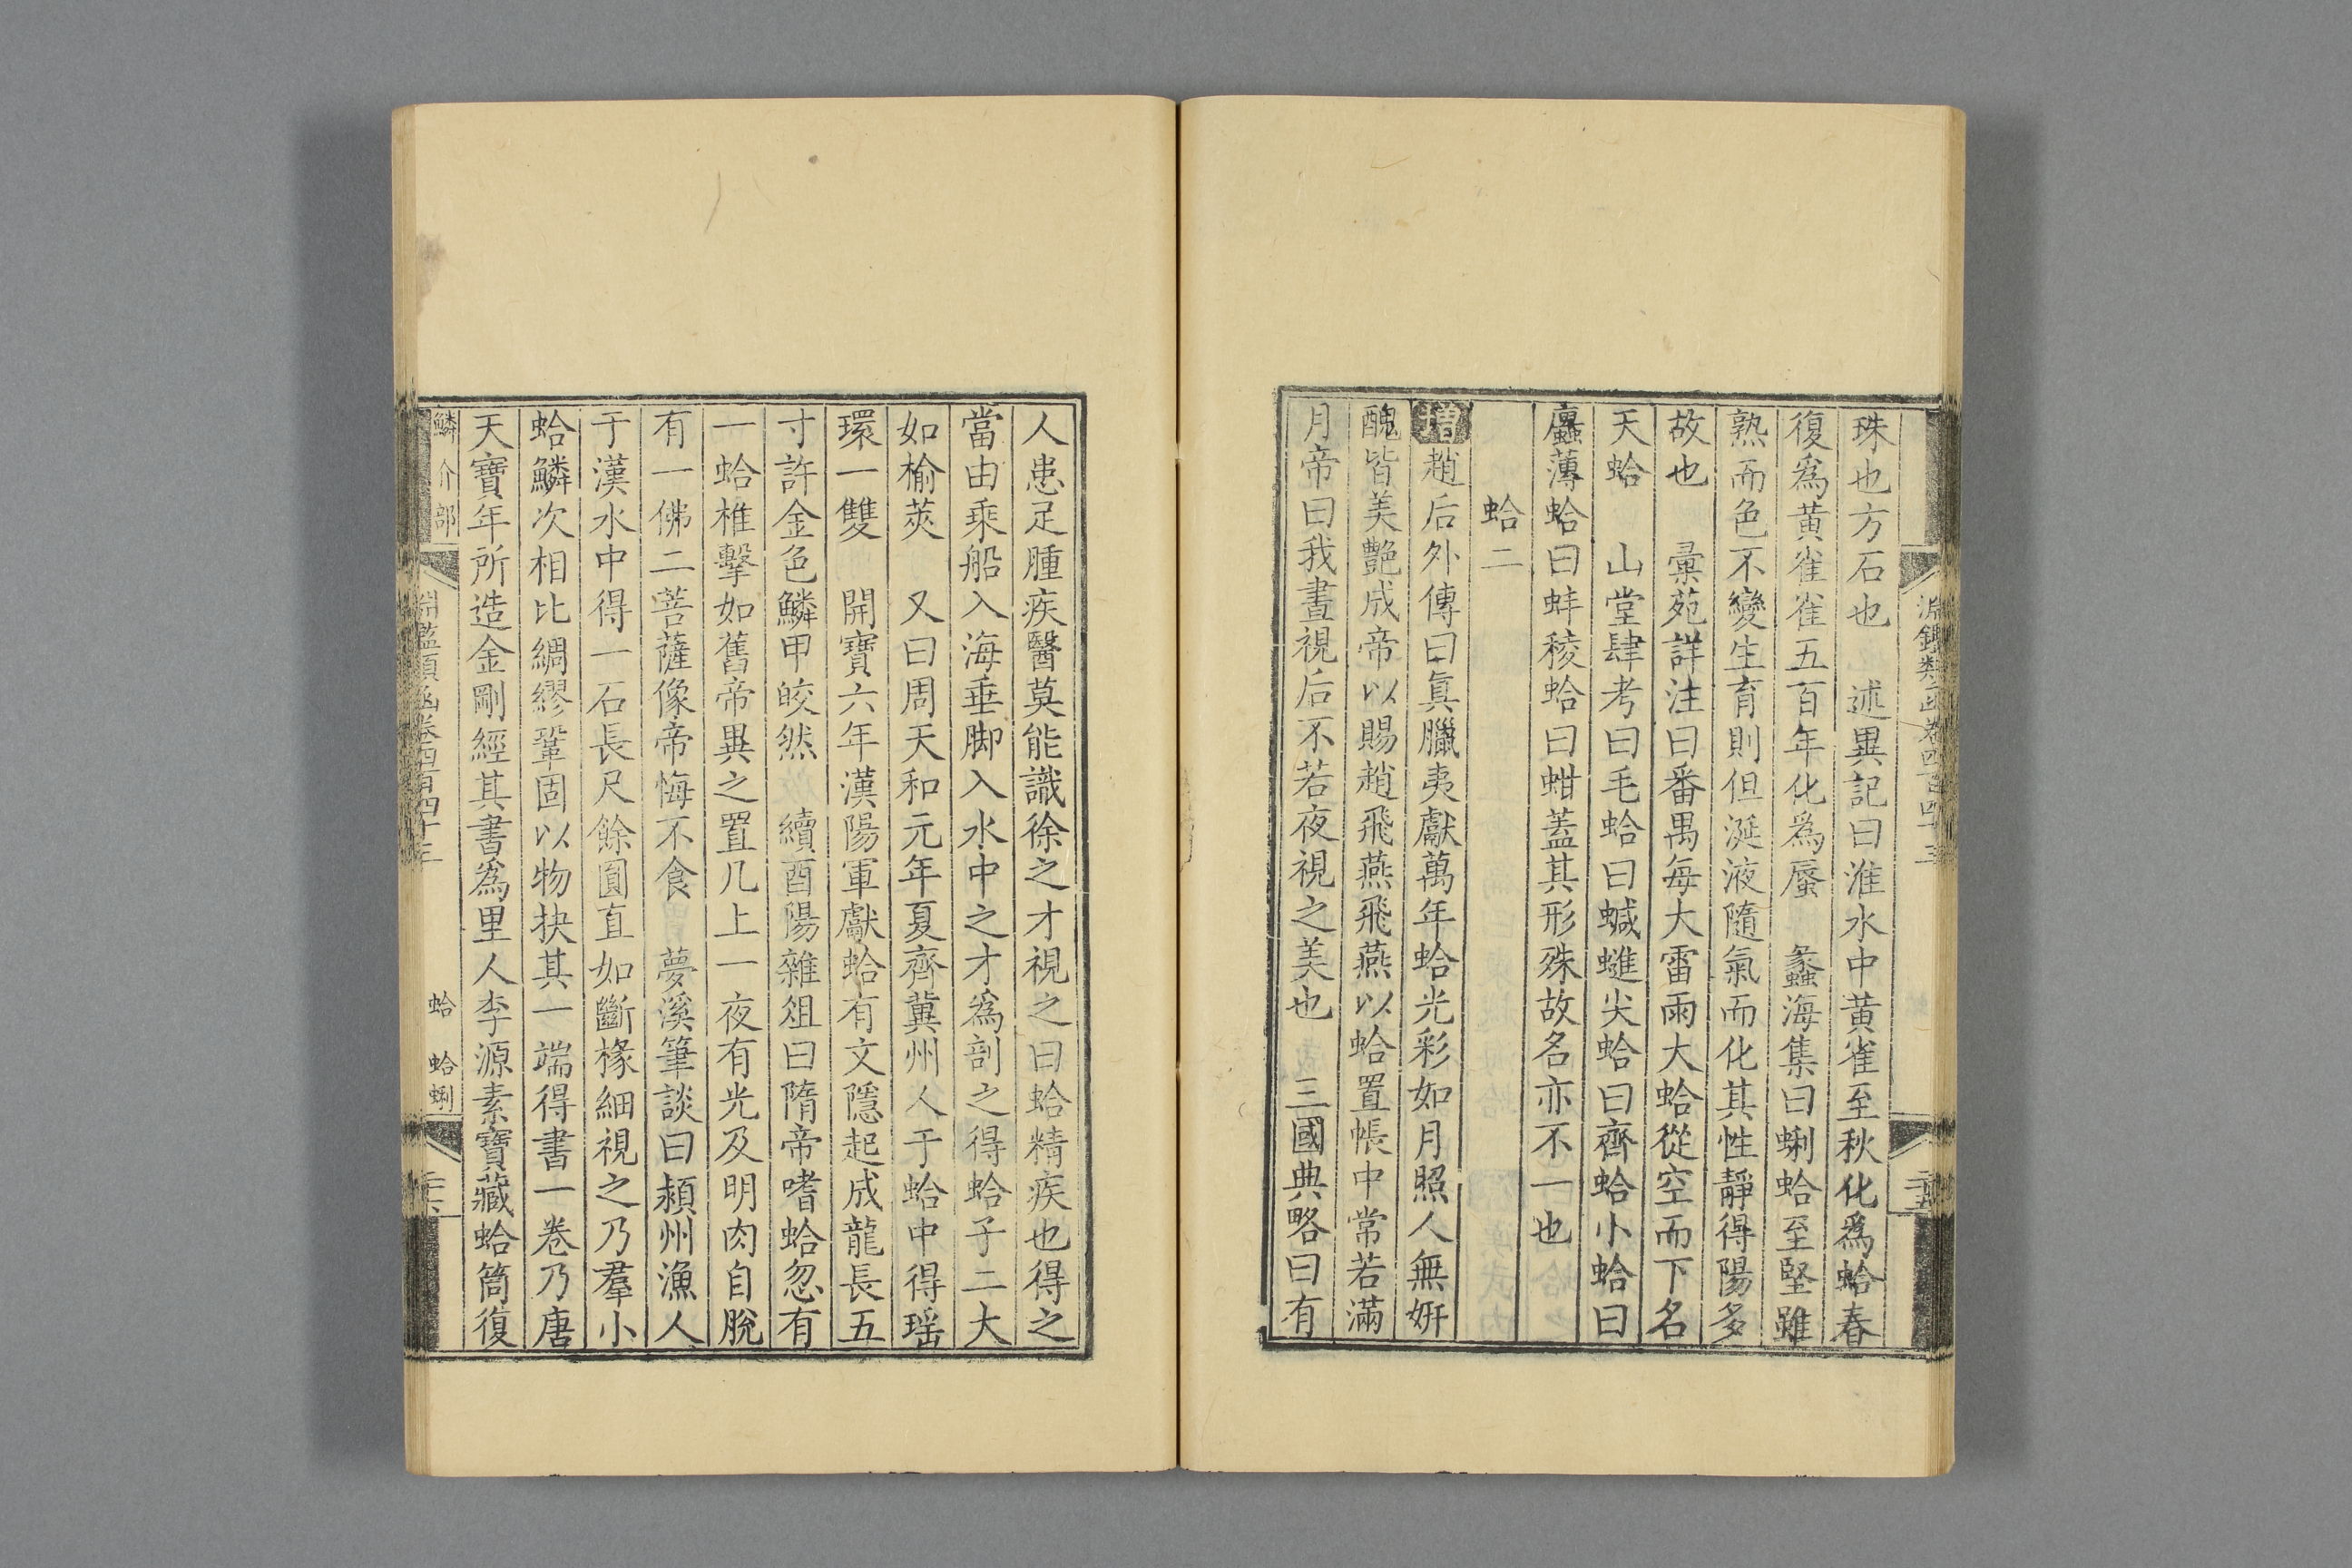 淵鑑類函卷四百四十三
二十五
珠也方石也　述異記曰淮水中黃雀至秋化爲蛤春
復爲黃雀雀五百年化爲蜃　蠡海集曰蜊蛤至堅雖
熟而色不變生育則但涎液隨氣而化其性靜得陽多
故也　彙苑詳注曰番禺每大雷雨大蛤從空而下名
天蛤　山堂肆考曰毛蛤曰蝛䗯尖蛤曰齊蛤小蛤曰
蠯薄蛤曰蚌稜蛤曰蚶蓋其形殊故名亦不一也
蛤二
增趙后外傳曰眞臘夷獻萬年蛤光彩如月照人無姸
醜皆美艷成帝以賜趙飛燕飛燕以蛤置帳中常若滿
月帝曰我晝視后不若夜視之美也　三國典略曰有
人患足腫疾醫莫能識徐之才視之曰蛤精疾也得之
當由乘船入海垂脚入水中之才爲剖之得蛤子二大
如榆莢　又曰周天和元年夏齊冀州人于蛤中得瑶
環一雙　開寶六年漢陽軍獻蛤有文隱起成龍長五
寸許金色鱗甲皎然　續酉陽雜俎曰隋帝嗜蛤忽有
一蛤椎擊如舊帝異之置几上一夜有光及明肉自脫
有一佛二菩薩像帝悔不食　夢溪筆談曰潁州漁人
于漢水中得一石長尺餘圓直如斷椽細視之乃羣小
蛤鱗次相比綢繆鞏固以物抉其一端得書一卷乃唐
天寶年所造金剛經其書爲里人李源素寶藏蛤筒復
鱗介部
淵鑑類函卷四百四十三
蛤　蛤蜊
二十六